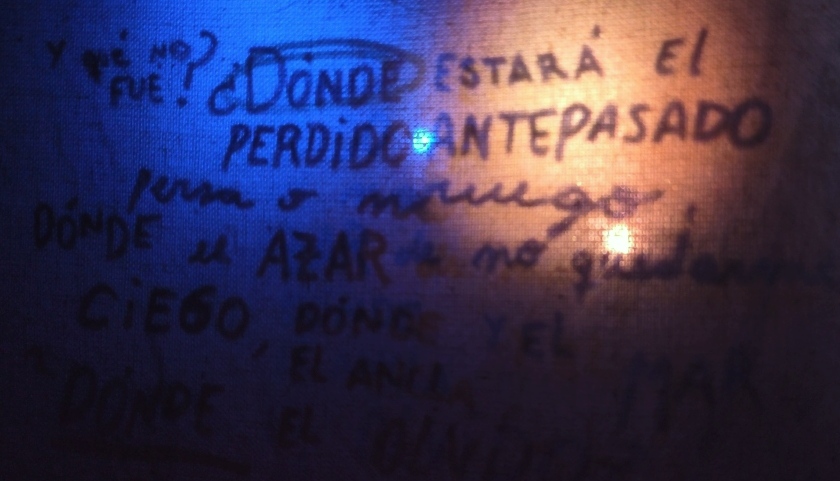 Y qué NO? ¿DÓNDE ESTARÁ El
FUE?
PERDiDO ANTEPASADO
persa o noruego,
DÓNDE el AZAR de no quedarme
CiEGO DÓNDE Y EL
EL ANCLA MAR
DÓNDE EL